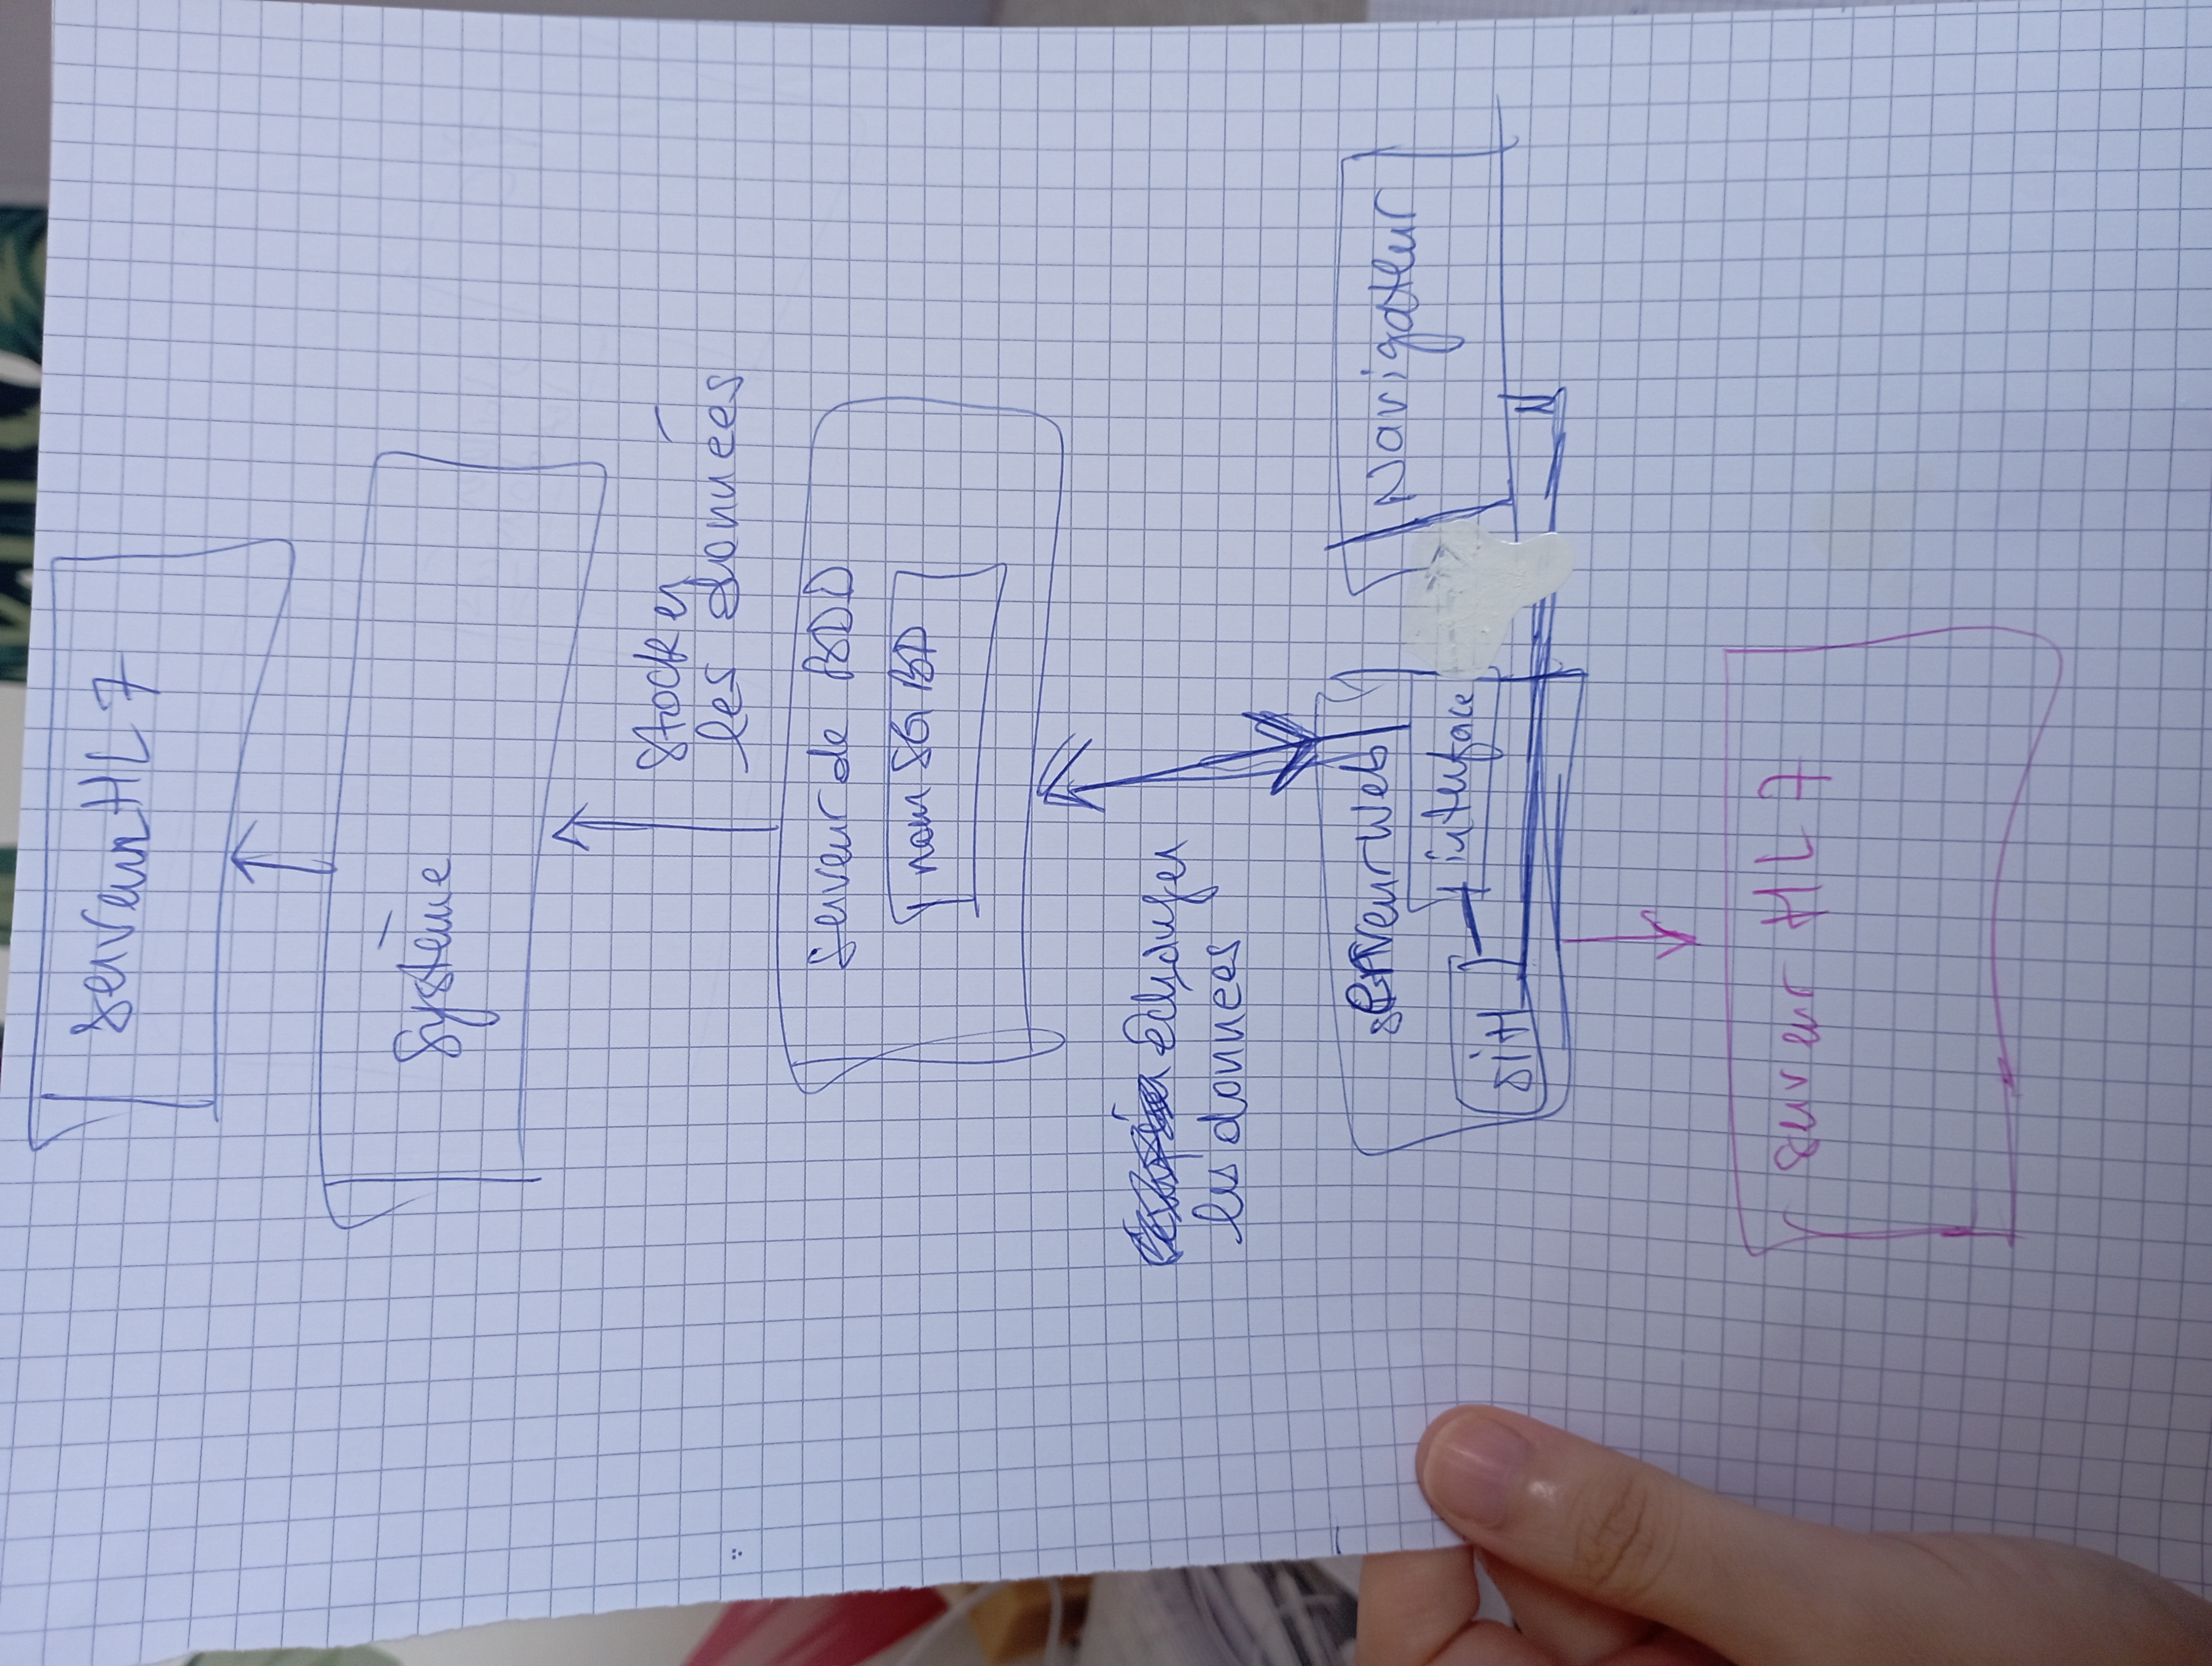 serveur HL7
Système
Stocker
les données
serveur de BDD
nom SGBD
échanger
les données
serveur web
Navigateur
interface
SiH
serveur HL7